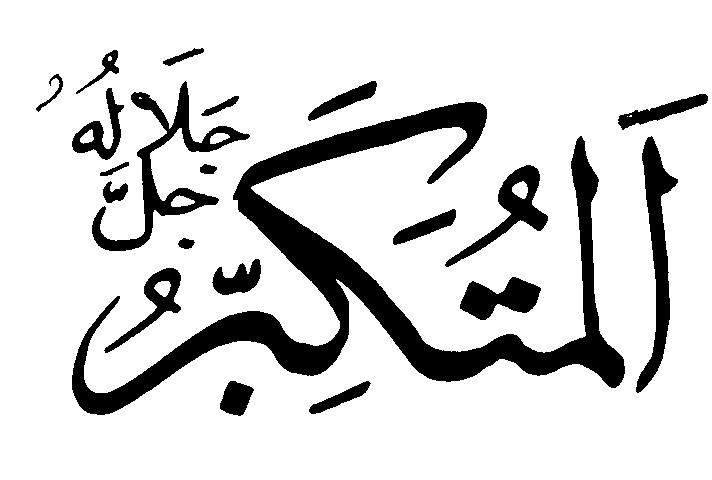 اَلْمُتَكَبِّرُ
جَلَّ جَلَالُهُ